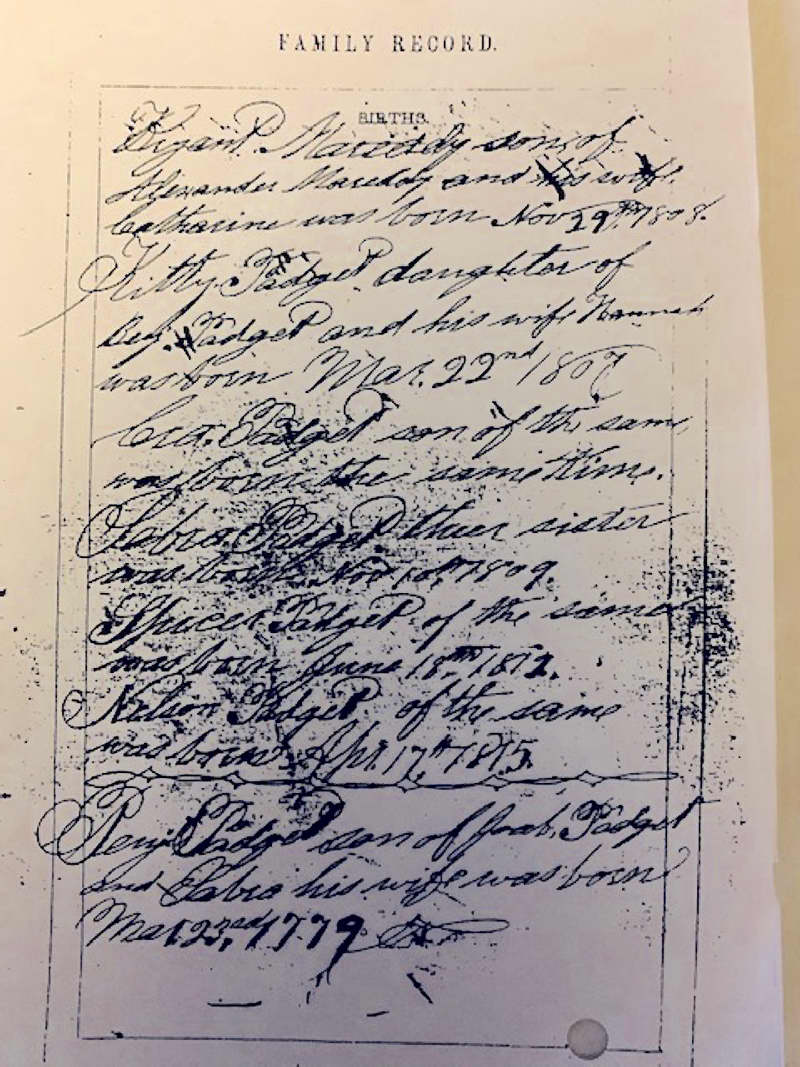 FAMILY RECORD.
BIRTHS.
son of
Alexander and his wife
Catharine was born Nov 29th 1808.
Kitty Padget daughter of
Benj. Padget and his wife Hannah
was born Mar. 22nd 1807
Padget son of the same
was born the same time.
Sabra Padget thier sister
was born Nov 10th 1809.
Spicer Padget of the same
was born June 18th 1812.
Nelson Padget of the same
was born Apr. 17th 1815.
Benj. Padget son of Padget
and Sabra his wife was born
Mar. 23rd, 1779